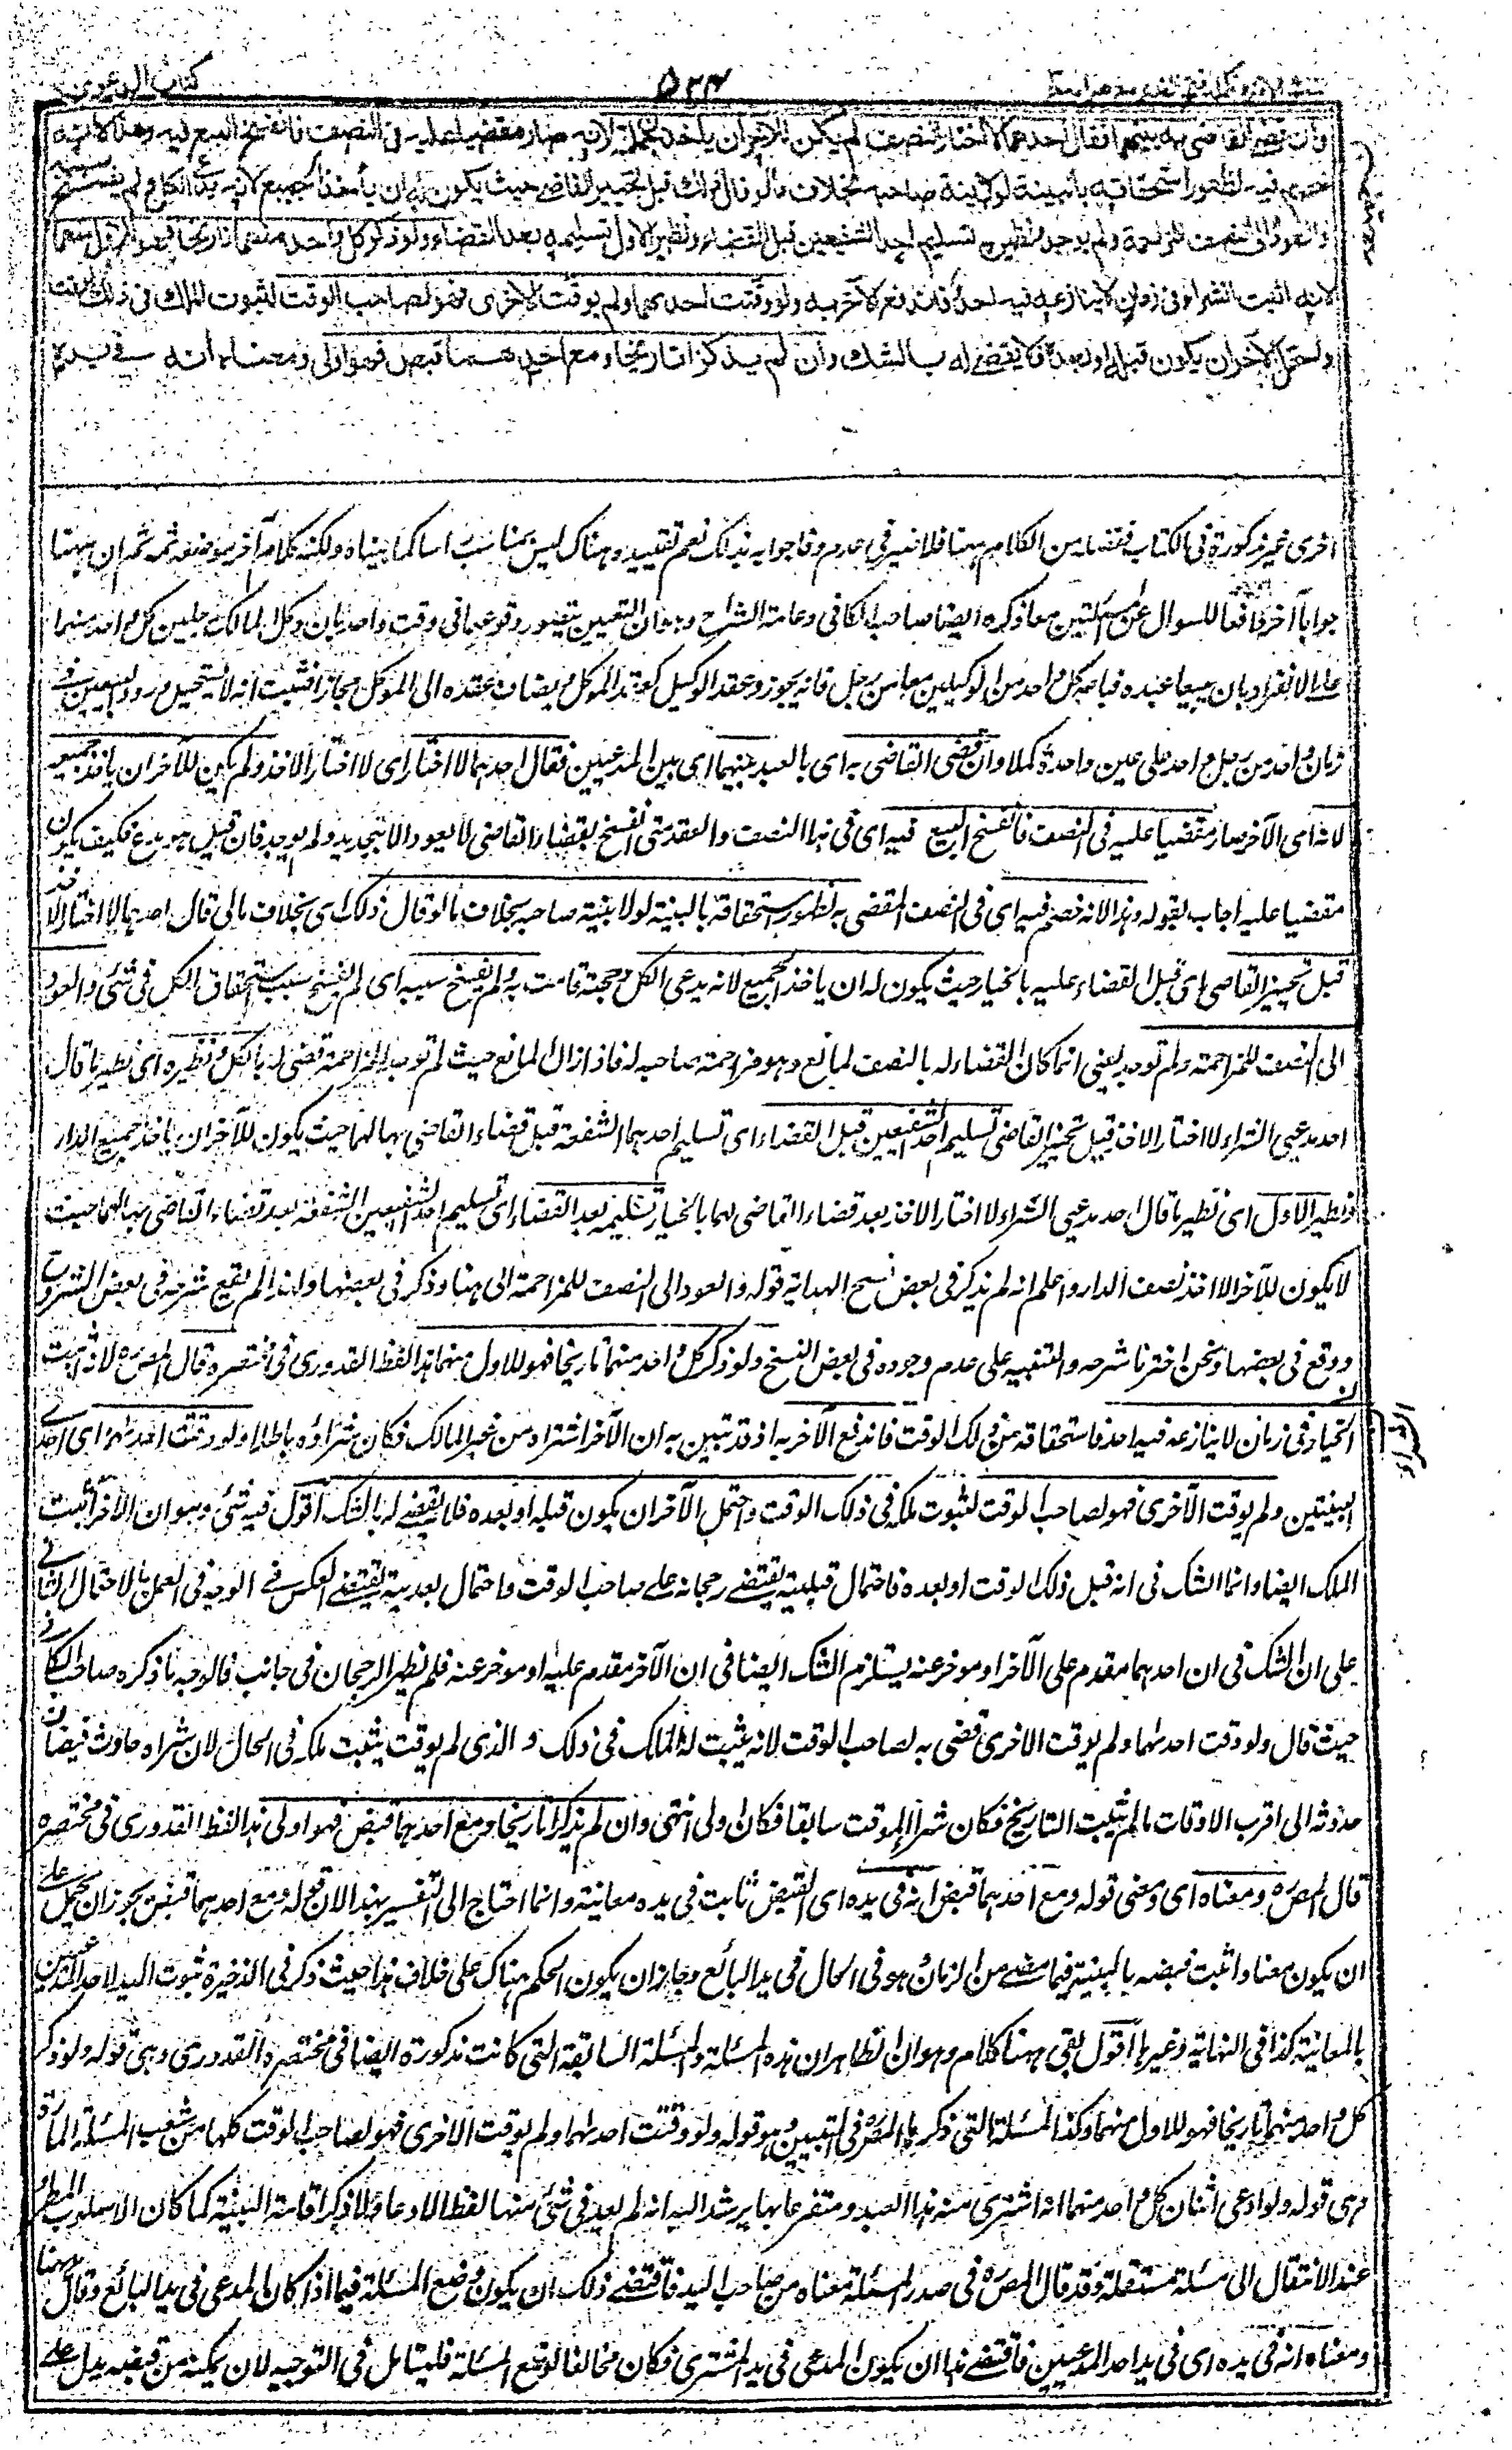 كتاب الدعوى
٥٢٤
وان قضى القاضي به بينهما فقال احدهما لا اختار النصف لم يكن للآخر ان يأخذ الجملة لانه صار مقضيا عليه في النصف فانفسخ البيع فيه وهذا لانه
خصم فيه لظهور استحقاقه بالبينة لولا بينة صاحبه بخلاف ما لو قال ذلك قبل تخيير القاضي حيث يكون له ان يأخذ الجميع لانه يدعي الكل ولم يفسخ سببه
والعود الى النصف للمزاحمة ولم يوجد ونظيره تسليم احد الشفيعين قبل القضاء ونظير الاول تسليمه بعد القضاء ولو ذكر كل واحد منهما تاريخا فهو للاول منهما
لانه اثبت الشراء في زمان لا ينازعه فيه احد فاندفع الآخر به ولو وقتت احدىهما ولم يوقت الاخرى فهو لصاحب الوقت لثبوت الملك في ذلك الوقت
واحتمل الآخر ان يكون قبله او بعده فلا يقضى له بالشك وان لم يذكرا تاريخا ومع احدهما قبض فهو اولى ومعناه انه في يده
اخرى غير مذكورة في الكتاب فقصد من الكلام ههنا فلا ضير في عدم وفا جوابه بذلك نعم تقييده هناك ليس بمناسب اسا كما بيناه ولكنه كلام آخر موضعه ثمه ثم ان ههنا
جوابا آخر دافعا للسوال عن المسئلتين معا ذكره ايضا صاحب الكافي وعامة الشراح وهو ان البيعين يتصور وقوعهما في وقت واحد بان وكل المالك رجلين كل واحد منهما
على الانفراد بان يبيعا عبده فباعه كل واحد من الوكيلين معا من رجل فانه يجوز وعقد الوكيل كعقد الموكل ويضاف عقده الى الموكل مجازا فثبت انه لا يستحيل ورود البيعين في
زمان واحد من رجل واحد على عين واحدة كملا وان قضى القاضي به اي بالعبد بينهما اي بين المدعيين فقال احدهما لا اختار اي لا اختار الاخذ ولم يكن للآخر ان ياخذ جميعه
لانه اي الآخر صار مقضيا عليه في النصف فانفسخ البيع فيه اي في هذا النصف والعقد متى انفسخ بقضاء القاضي لا يعود الا بتجديد ولم يوجد فان قيل هو مدع فكيف يكون
مقضيا عليه اجاب بقوله وهذا لانه خصم فيه اي في النصف المقضي به لظهور استحقاقه بالبينة لولا بينة صاحبه بخلاف ما لو قال ذلك اي بخلاف ما الى قال احدهما لا اختار الاخذ
قبل تخيير القاضي اي قبل القضاء عليه بالخيار حيث يكون له ان ياخذ الجميع لانه يدعي الكل وحجته قامت به ولم يفسخ سببه اي لم يفسخ سبب استحقاق الكل في شئ والعود
الى النصف للمزاحمة ولم توجد يعني انما كان القضاء له بالنصف لمانع وهو مزاحمة صاحبه له فاذا زال المانع حيث لم توجد المزاحمة قضى له بالكل ونظيره اي نظير ما قال
احد مدعيي الشراء لا اختار الاخذ قبل تخيير القاضي تسليم احد الشفيعين قبل القضاء اي تسليم احدهما الشفعة قبل قضاء القاضي بها لهما حيث يكون للآخر ان ياخذ جميع الدار
ونظير الاول اي نظير ما قال احد مدعيي الشراء لا اختار الاخذ بعد قضاء القاضي لهما بالخيار تسليمه بعد القضاء اي تسليم احد الشفيعين الشفعة بعد قضاء القاضي بها لهما حيث
لا يكون للآخر الا اخذ نصف الدار واعلم انه لم يذكر في بعض نسخ الهداية قوله والعود الى النصف للمزاحمة الى هنا وذكر في بعضها ولهذا لم يقع شرحه في بعض الشروح
ووقع في بعضها ونحن اخترنا شرحه والتنبيه على عدم وجوده في بعض النسخ ولو ذكر كل واحد منهما تاريخا فهو للاول منهما هذا لفظ القدوري في مختصره قال المصره لانه اثبت
الشراء في زمان لا ينازعه فيه احد فاستحقاقه من ذلك الوقت فاندفع الآخر به اذ قد تبين به ان الآخر اشتراه من غير المالك فكان شراؤه باطلا ولو وقتت احدىهما اي احدى
البينتين ولم يوقت الآخرى فهو لصاحب الوقت لثبوت ملكه في ذلك الوقت واحتمل الآخر ان يكون قبله او بعده فلا يقضى له بالشك اقول فيه شئ وهو ان الآخر اثبت
الملك ايضا وانما الشك في انه قبل ذلك الوقت او بعده فاحتمال قبليته يقتضى رجحانه على صاحب الوقت واحتمال بعديته يقتضى العكس فما الوجه في العمل بالاحتمال الثاني
على ان الشك في ان احدهما مقدم على الآخر او موخر عنه يستلزم الشك ايضا في ان الآخر مقدم عليه او موخر عنه فلم يظهر الرجحان في جانب فالوجه ما ذكره صاحب الكافي
حيث قال ولو وقت احدىهما ولم يوقت الاخرى قضى به لصاحب الوقت لانه يثبت له الملك في ذلك و الذي لم يوقت يثبت ملكه في الحال لان شراه حادث فيضاف
حدوثه الى اقرب الاوقات ما لم يثبت التاريخ فكان شراء الموقت سابقا فكان اولى انتهى وان لم يذكرا تاريخا ومع احدهما قبض فهو اولى هذا لفظ القدوري في مختصره
قال المصره ومعناه اي ومعنى قوله ومع احدهما قبض انه في يده اي القبض ثابت في يده معاينة وانما احتاج الى التفسير بهذا لان قوله ومع احدهما قبض يجوز ان يحمل على
ان يكون معناه اثبت قبضه بالبينة فيما مضى من الزمان وهو في الحال في يد البائع وجاز ان يكون الحكم هناك على خلاف هذا حيث ذكر في الذخيرة ثبوت اليد لاحد المدعيين
بالمعاينة كذا في النهاية وغيرها اقول بقي ههنا كلام وهو ان الظاهر ان هذه المسئلة والمسئلة السابقة التي كانت مذكورة ايضا في مختصره القدوري وهي قوله ولو ذكر
كل واحد منهما تاريخا فهو للاول منهما وكذا المسئلة التي ذكرها المصره في التبيين وهو قوله ولو وقتت احدىهما ولم يوقت الاخرى فهو لصاحب الوقت كلها من شعب المسئلة المارة
وهي قوله ولو ادعى اثنان كل واحد منهما انه اشترى منه هذا العبد ومتفرعاتها يرشد اليه انه لم يعد في شئ منها لفظ الادعاء ولا ذكر اقامة البينة كما كان الاسلوب المطرد
عند الانتقال الى مسئلة مستقلة وقد قال المصره في صدر المسئلة معناه من صاحب اليد فاقتضى ذلك ان يكون وضع المسئلة فيما اذا كان المدعى في يد البائع وقال ههنا
ومعناه انه في يده اي في يد احد المدعيين فاقتضى هذا ان يكون المدعى في يد المشتري فكان مخالفا لوضع المسئلة فليتامل في التوجيه لان تمكنه من قبضه يدل على